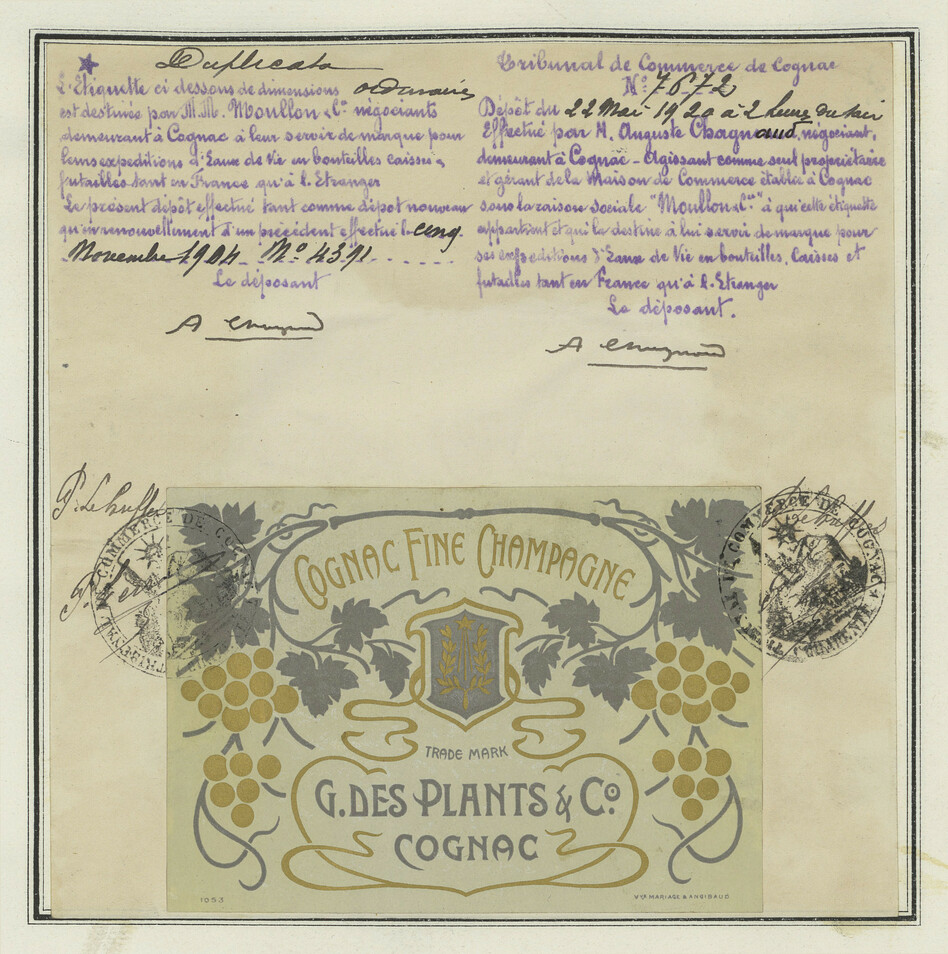 Duplicata
L'Etiquette ci dessous de dimensions ordinaires
est destinée par M.M. Moullon & Cie négociants
demeurant à Cognac à leur servir de marque pour
leurs expéditions d'Eaux de Vie en bouteilles caisses &
futailles tant en France qu'à l'Etranger
Le présent dépôt effectué tant comme dépôt nouveau
qu'en renouvellement d'un précédent effectué le cinq
Novembre 1904 No 4391
Le déposant
A Chagnaud
Tribunal de Commerce de Cognac
No 7672
Dépôt du 22 Mai 1920 à 2 heures du soir
Effectué par M. Auguste Chagnaud, négociant,
demeurant à Cognac - Agissant comme seul propriétaire
et gérant de la Maison de Commerce établie à Cognac
sous la raison sociale "Moullon & Cie" à qui cette étiquette
appartient et qui la destine à lui servir de marque pour
ses expéditions d'Eaux de Vie en bouteilles, Caisses et
futailles tant en France qu'à l'Etranger
Le déposant.
A Chagnaud
COMMERCE DE COGNAC
COMMERCE DE COGNAC
COGNAC FINE CHAMPAGNE
TRADE MARK
G. DES PLANTS & Co
COGNAC
1053
Vve MARIAGE & ANGIBAUD